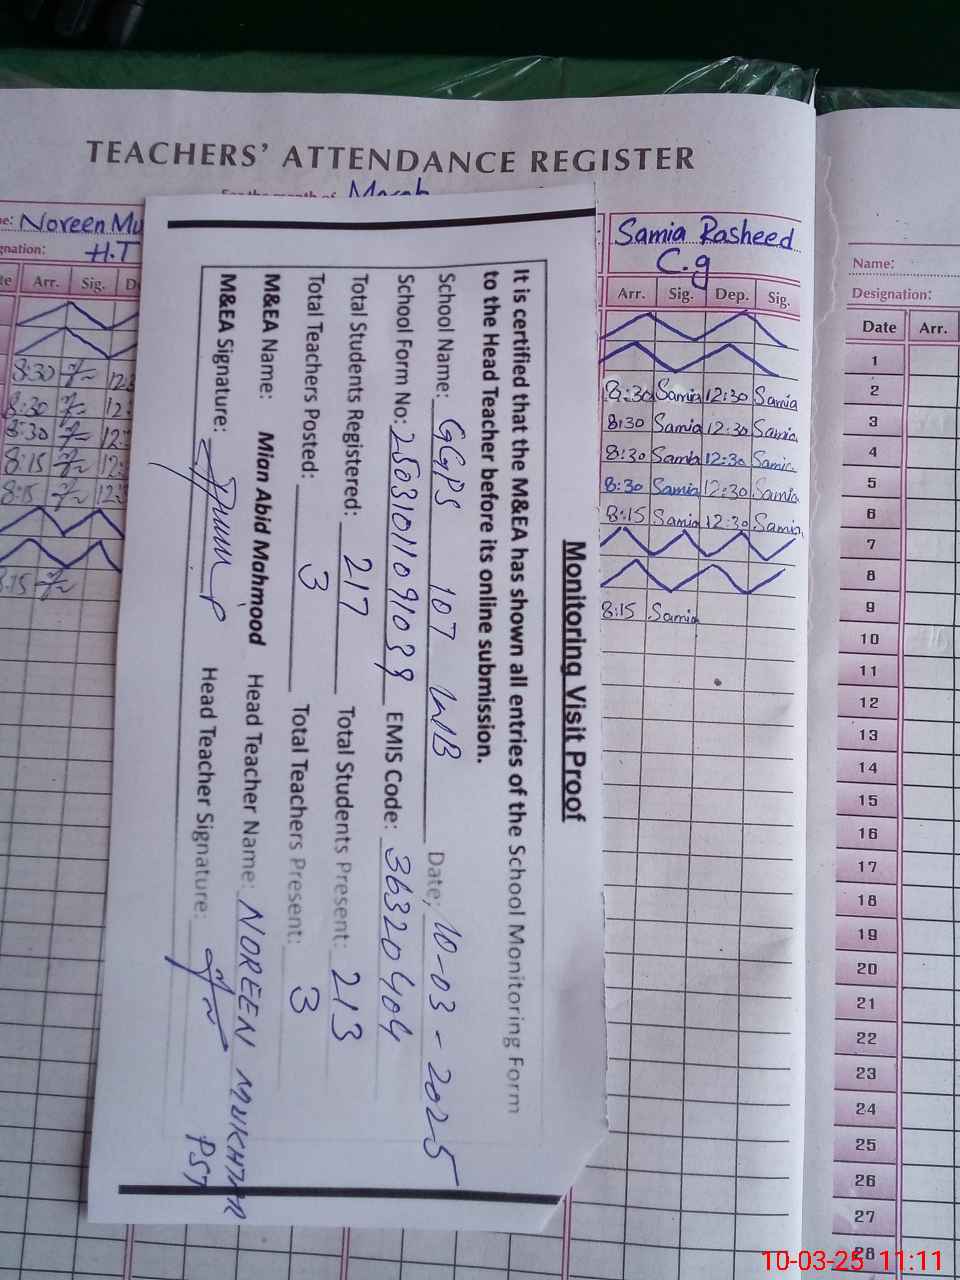 TEACHERS' ATTENDANCE REGISTER
For the month of March
Noreen Mu
H.T
Arr. Sig.
8:30 12:
8:30 12:
8:30 12:
8:15 12:
8:15 12:
Samia Rasheed
C.g
Arr. Sig. Dep. Sig.
8:30 Samia 12:30 Samia
8:30 Samia 12:30 Samia
8:30 Samia 12:30 Samia
8:30 Samia 12:30 Samia
8:15 Samia 12:30 Samia
8:15 Samia
Name:
Designation:
Date Arr.
1
2
3
4
5
6
7
8
9
10
11
12
13
14
15
16
17
18
19
20
21
22
23
24
25
26
27
28
Monitoring Visit Proof
It is certified that the M&EA has shown all entries of the School Monitoring Form
to the Head Teacher before its online submission.
School Name: GGPS 107 WB Date: 10-03-2025
School Form No: EMIS Code: 36320404
Total Students Registered: 217 Total Students Present: 213
Total Teachers Posted: 3 Total Teachers Present: 3
M&EA Name: Mian Abid Mahmood Head Teacher Name: NOREEN MUKHTAR
PST
M&EA Signature: Head Teacher Signature:
10-03-25 11:11